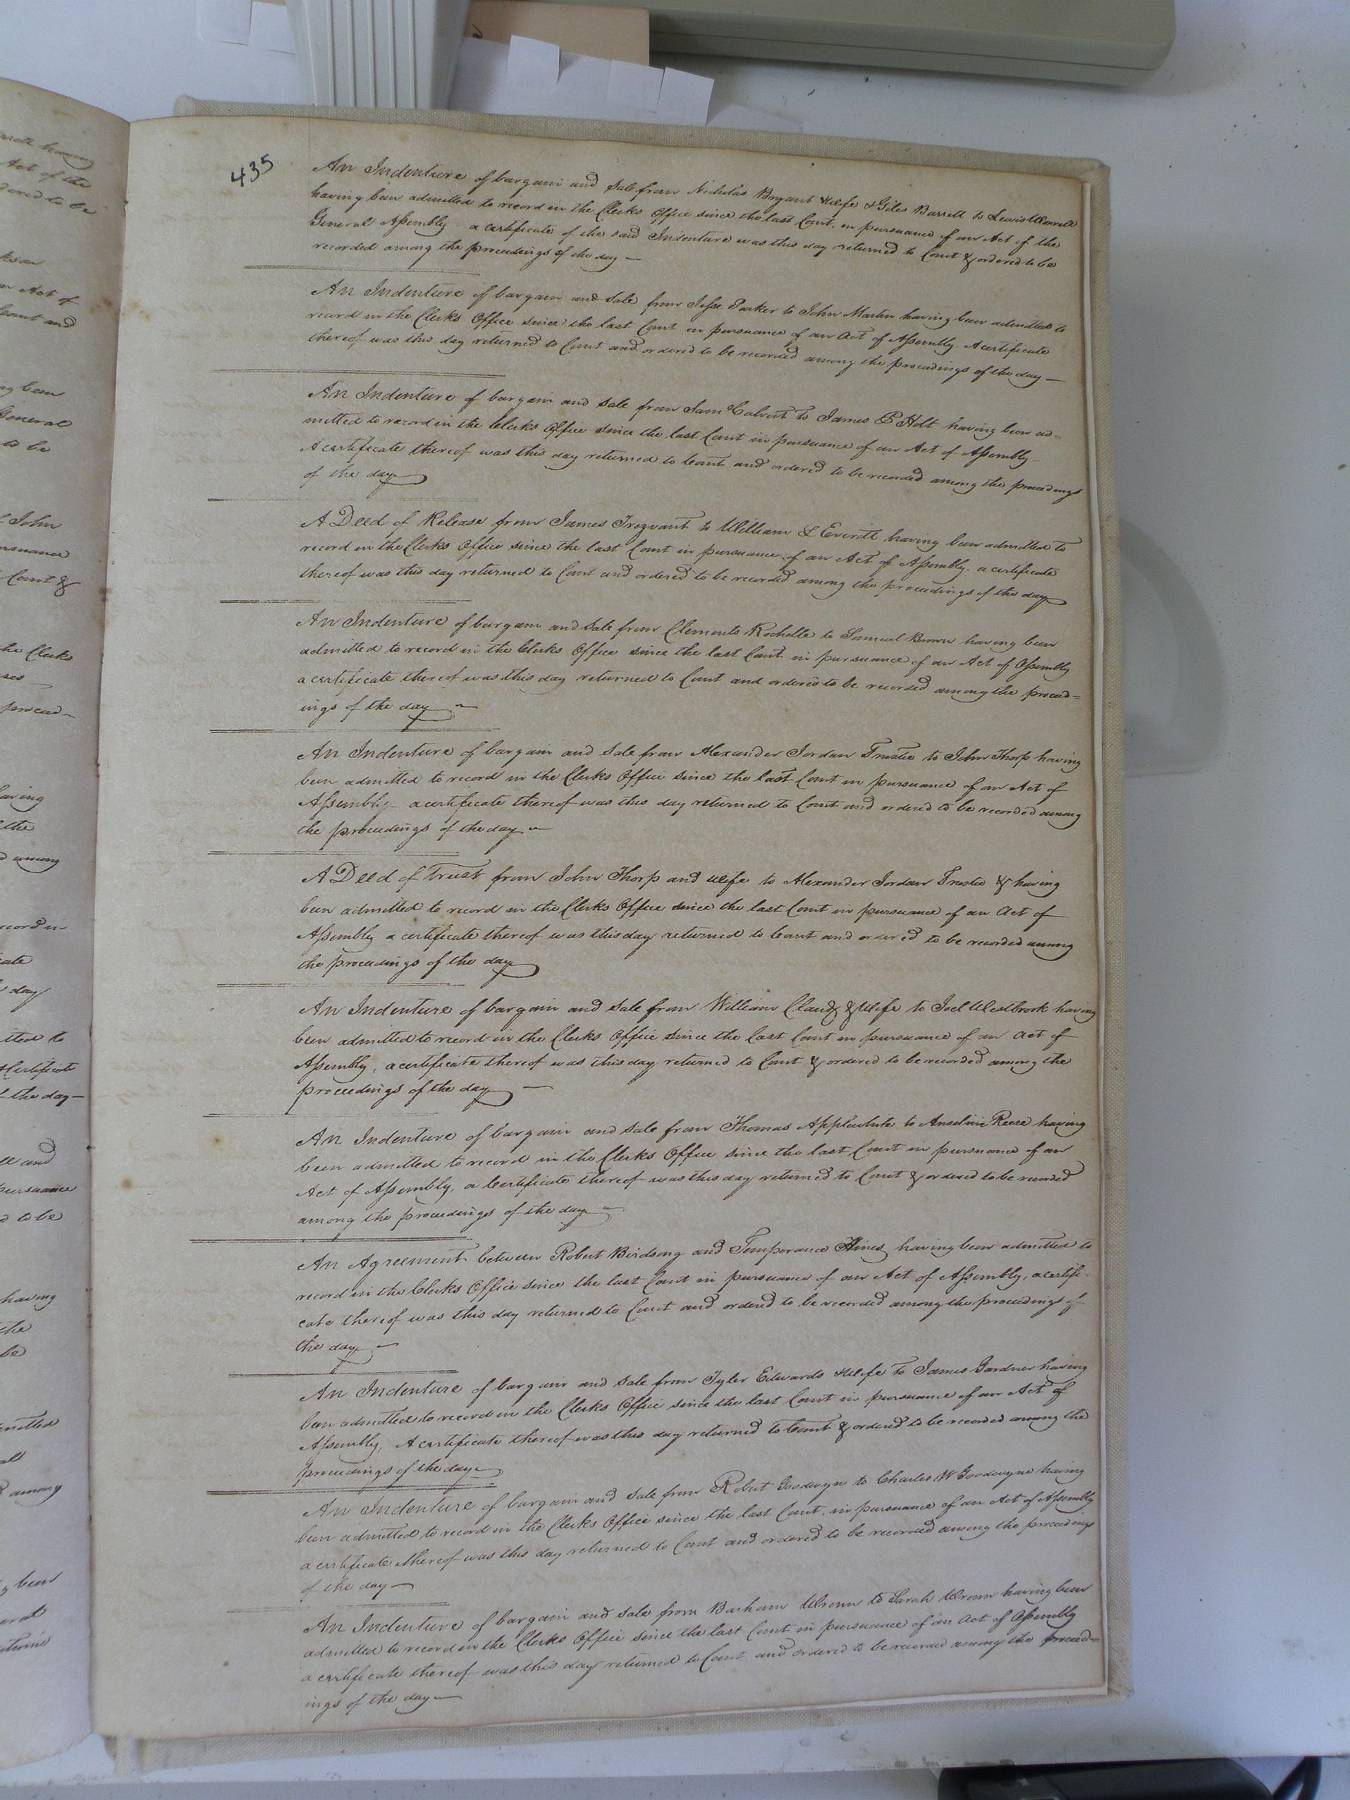 435
An Indenture of bargain and Sale from Nicholas Bryant & wife & Giles Barrett to Lewis Worrell
having been admitted to record in the Clerks Office since the last Court, in pursuance of an Act of the
General Assembly a certificate of the said Indenture was this day returned to Court & ordered to be
recorded among the proceedings of the day
An Indenture of bargain and sale from Jesse Parker to John Martin having been admitted to
record in the Clerks Office since the last Court in pursuance of an Act of Assembly A certificate
thereof was this day returned to Court and ordered to be recorded among the proceedings of the day
An Indenture of bargain and sale from Saml Calvert to James P Holt having been ad=
mitted to record in the Clerks Office since the last Court in pursuance of an Act of Assembly
A certificate thereof was this day returned to Court and ordered to be recorded among the proceedings
of the day
A Deed of Release from James Trezvant to William & Everitt having been admitted to
record in the Clerks Office since the last Court in pursuance of an Act of Assembly. a certificate
thereof was this day returned to Court and ordered to be recorded among the proceedings of the day
An Indenture of bargain and sale from Clements Rochelle to Samuel Brown having been
admitted to record in the Clerks Office since the last Court in pursuance of an Act of Assembly
a certificate thereof was this day returned to Court and ordered to be recorded among the proceed=
ings of the day
An Indenture of bargain and sale from Alexander Jordan Trustee to John Thorp having
been admitted to record in the Clerks Office since the last Court in pursuance of an Act of
Assembly a certificate thereof was this day returned to Court and ordered to be recorded among
the proceedings of the day
A Deed of Trust from John Thorp and wife to Alexander Jordan Trustee & having
been admitted to record in the Clerks Office since the last Court in pursuance of an Act of
Assembly a certificate thereof was this day returned to Court and ordered to be recorded among
the proceedings of the day
An Indenture of bargain and sale from William Claud & Wife to Joel Westbrook having
been admitted to record in the Clerks Office since the last Court in pursuance of an Act of
Assembly, a certificate thereof was this day returned to Court & ordered to be recorded among the
proceedings of the day
An Indenture of bargain and sale from Thomas Applewhite to Anselm Reese having
been admitted to record in the Clerks Office since the last Court in pursuance of an
Act of Assembly, a Certificate thereof was this day returned to Court & ordered to be recorded
among the proceedings of the day
An Agreement between Robert Birdsong and Temperance Hines having been admitted to
record in the Clerks Office since the last Court in pursuance of an Act of Assembly, a certifi-
cate thereof was this day returned to Court and ordered to be recorded among the proceedings of
the day
An Indenture of bargain and sale from Tyler Edwards & Wife to James Gardner having
been admitted to record in the Clerks Office since the last Court in pursuance of an Act of
Assembly, A certificate thereof was this day returned to Court & ordered to be recorded among the
proceedings of the day
An Indenture of bargain and sale from Robert Goodwyn to Charles W Goodwyne having
been admitted to record in the Clerks Office since the last Court, in pursuance of an Act of Assembly
a certificate thereof was this day returned to Court and ordered to be recorded among the proceedings
of the day
An Indenture of bargain and sale from Barham Wrenn to Sarah Wrenn having been
admitted to record in the Clerks Office since the last Court in pursuance of an Act of Assembly
a certificate thereof was this day returned to Court and ordered to be recorded among the proceed=
ings of the day